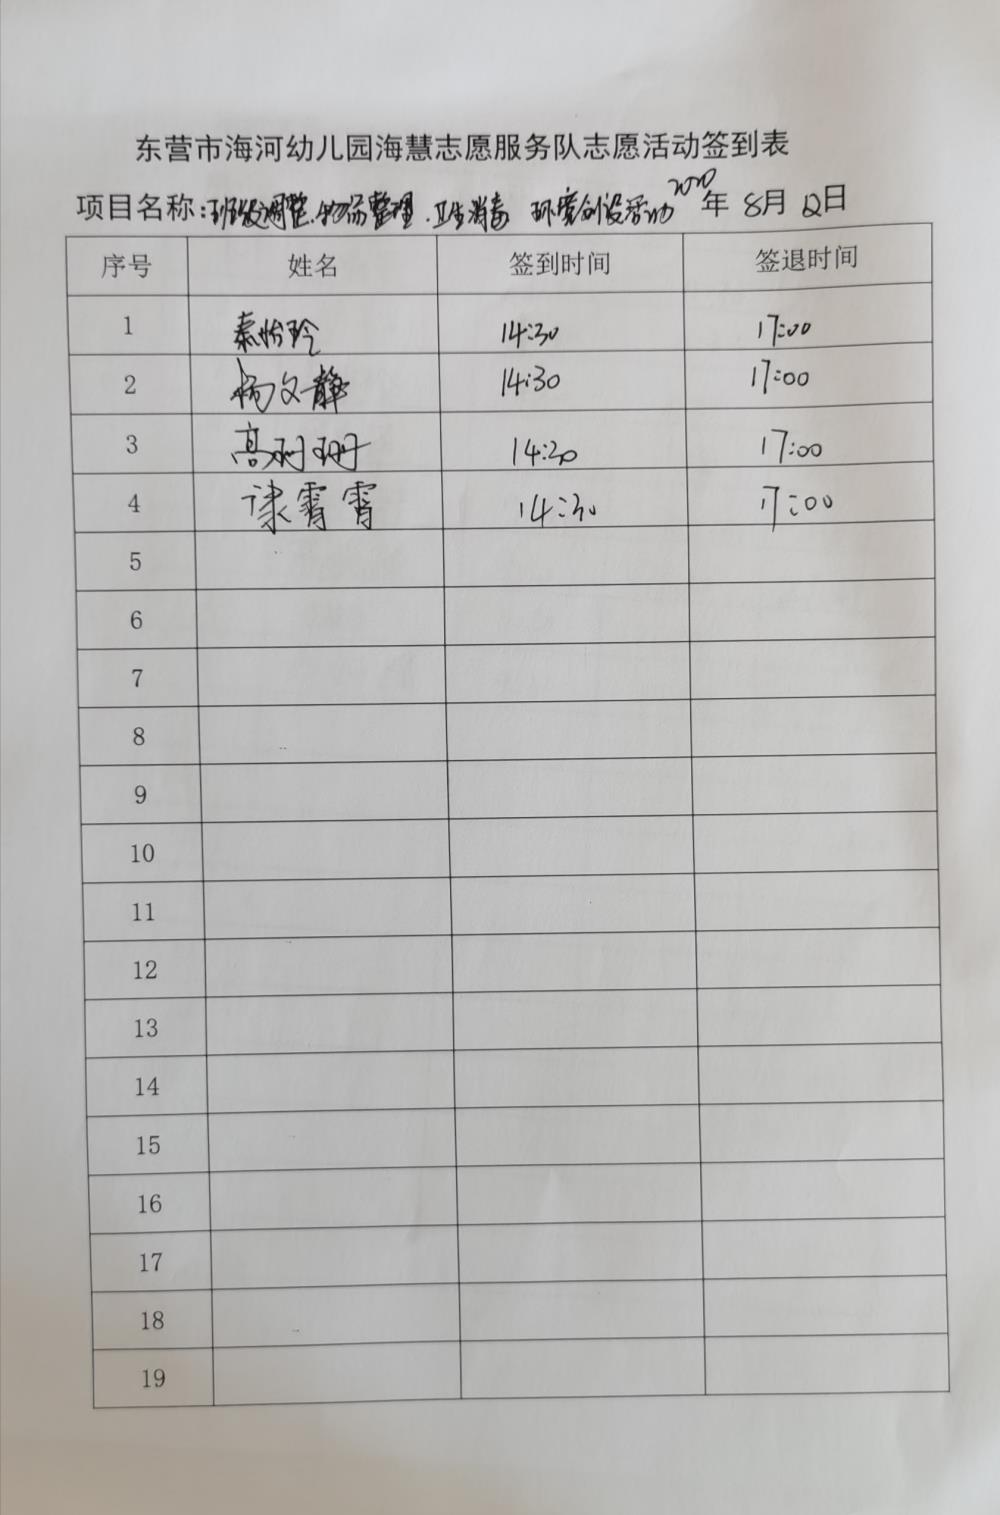 东营市海河幼儿园海慧志愿服务队志愿活动签到表
项目名称:班级调整.物品整理.卫生消毒 环境创设活动 2020年8月12日
序号 姓名 签到时间 签退时间
1 秦怡玲 14:30 17:00
2 杨文静 14:30 17:00
3 高珊珊 14:30 17:00
4 霄霄 14:30 17:00
5
6
7
8
9
10
11
12
13
14
15
16
17
18
19